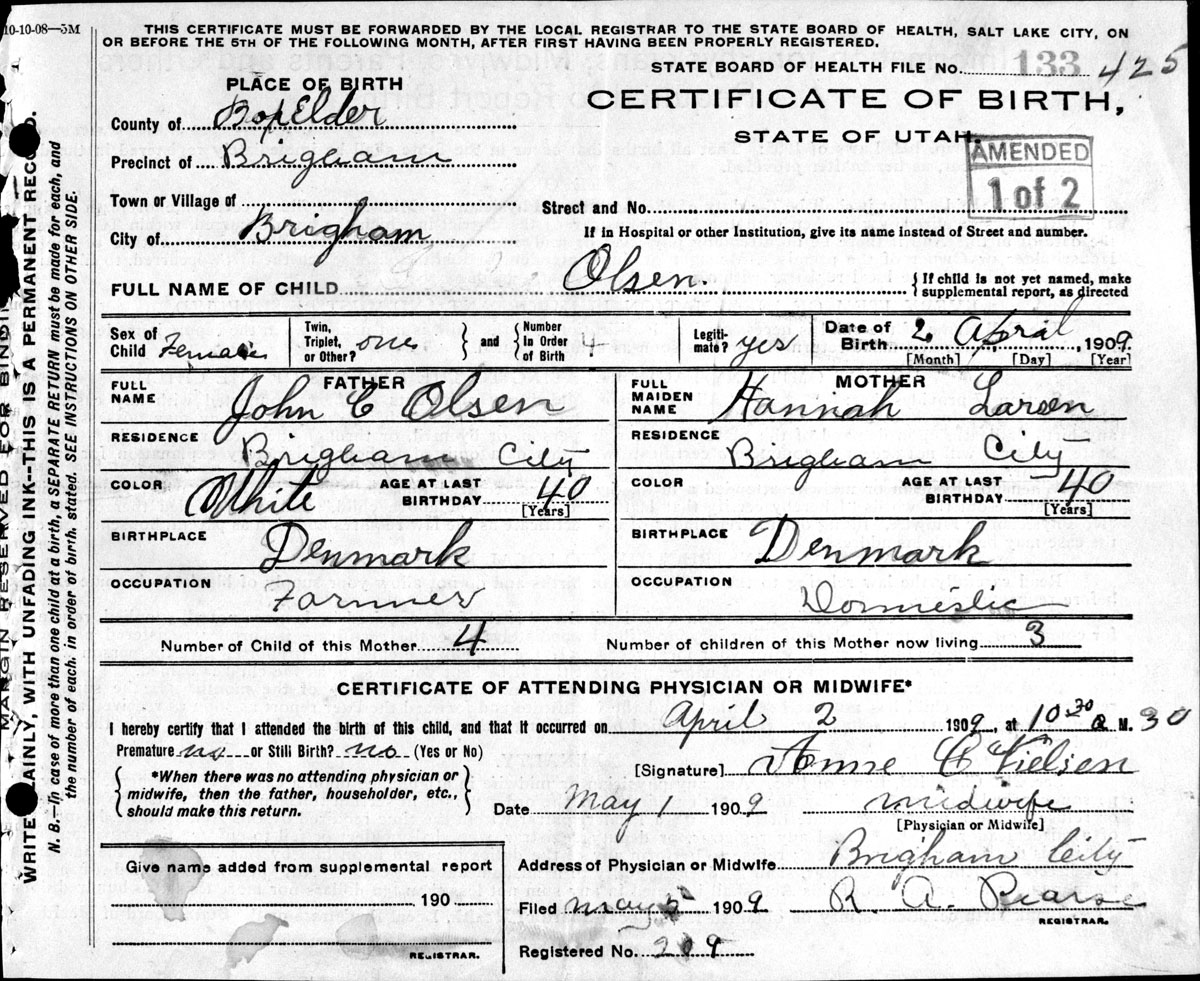 10-10-08—5M
THIS CERTIFICATE MUST BE FORWARDED BY THE LOCAL REGISTRAR TO THE STATE BOARD OF HEALTH, SALT LAKE CITY, ON
OR BEFORE THE 5TH OF THE FOLLOWING MONTH, AFTER FIRST HAVING BEEN PROPERLY REGISTERED.
STATE BOARD OF HEALTH FILE No. 133 425
PLACE OF BIRTH
CERTIFICATE OF BIRTH,
STATE OF UTAH
AMENDED
1 of 2
County of BoxElder
Precinct of Brigham
Town or Village of
Street and No.
City of Brigham
If in Hospital or other Institution, give its name instead of Street and number.
FULL NAME OF CHILD Olsen. {If child is not yet named, make
supplemental report, as directed
Sex of Child Female Twin, Triplet, or Other? one } and { Number In Order of Birth 4 Legiti-mate? yes Date of Birth 2 April 1909.
[Month] [Day] [Year]
FATHER
FULL NAME John C Olsen
MOTHER
FULL MAIDEN NAME Hannah Larsen
RESIDENCE Brigham City
RESIDENCE Brigham City
COLOR White AGE AT LAST BIRTHDAY 40 [Years]
COLOR AGE AT LAST BIRTHDAY 40 [Years]
BIRTHPLACE Denmark
BIRTHPLACE Denmark
OCCUPATION Farmer
OCCUPATION Domestic
Number of Child of this Mother 4 Number of children of this Mother now living 3
CERTIFICATE OF ATTENDING PHYSICIAN OR MIDWIFE*
I hereby certify that I attended the birth of this child, and that it occurred on April 2 1909, at 10 30 a M. 30
Premature no or Still Birth? no (Yes or No)
*When there was no attending physician or
midwife, then the father, householder, etc.,
should make this return.
[Signature] Anne C Nielsen
Date May 1 1909 midwife
[Physician or Midwife]
Give name added from supplemental report
190
REGISTRAR.
Address of Physician or Midwife Brigham City
Filed May 5 1909 R. A. Pearse
REGISTRAR.
Registered No. 209
MARGIN RESERVED FOR BINDI
WRITE LAINLY, WITH UNFADING INK--THIS IS A PERMANENT RECORD.
N. B.—In case of more than one child at a birth, a SEPARATE RETURN must be made for each, and
the number of each, in order of birth, stated. SEE INSTRUCTIONS ON OTHER SIDE.